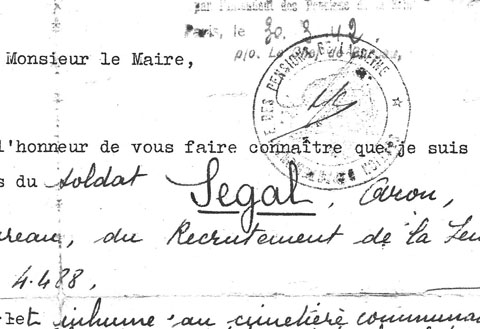 par l'Intendant des Pensions de la Seine
Paris, le 30.3.42.
p/o. Le
Monsieur le Maire,
l'honneur de vous faire connaître que je suis
s du soldat Segal, Aron,
ureau, du Recrutement de la Sei
4.488,
let inhumé au cimetière communa